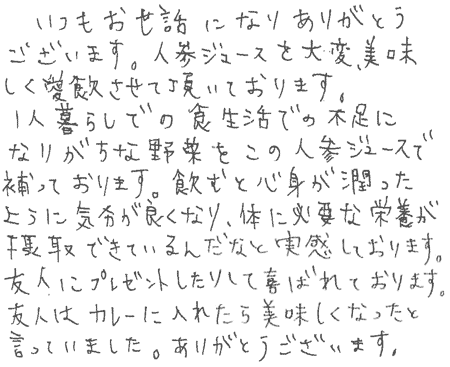 いつもお世話になりありがとう
ございます。人参ジュースを大変、美味
しく愛飲させて頂いております。
1人暮らしでの食生活での不足に
なりがちな野菜をこの人参ジュースで
補っております。飲むと心身が潤った
ように気分が良くなり、体に必要な栄養が
摂取できているんだなと実感しております。
友人にプレゼントしたりして喜ばれております。
友人はカレーに入れたら美味しくなったと
言っていました。ありがとうございます。